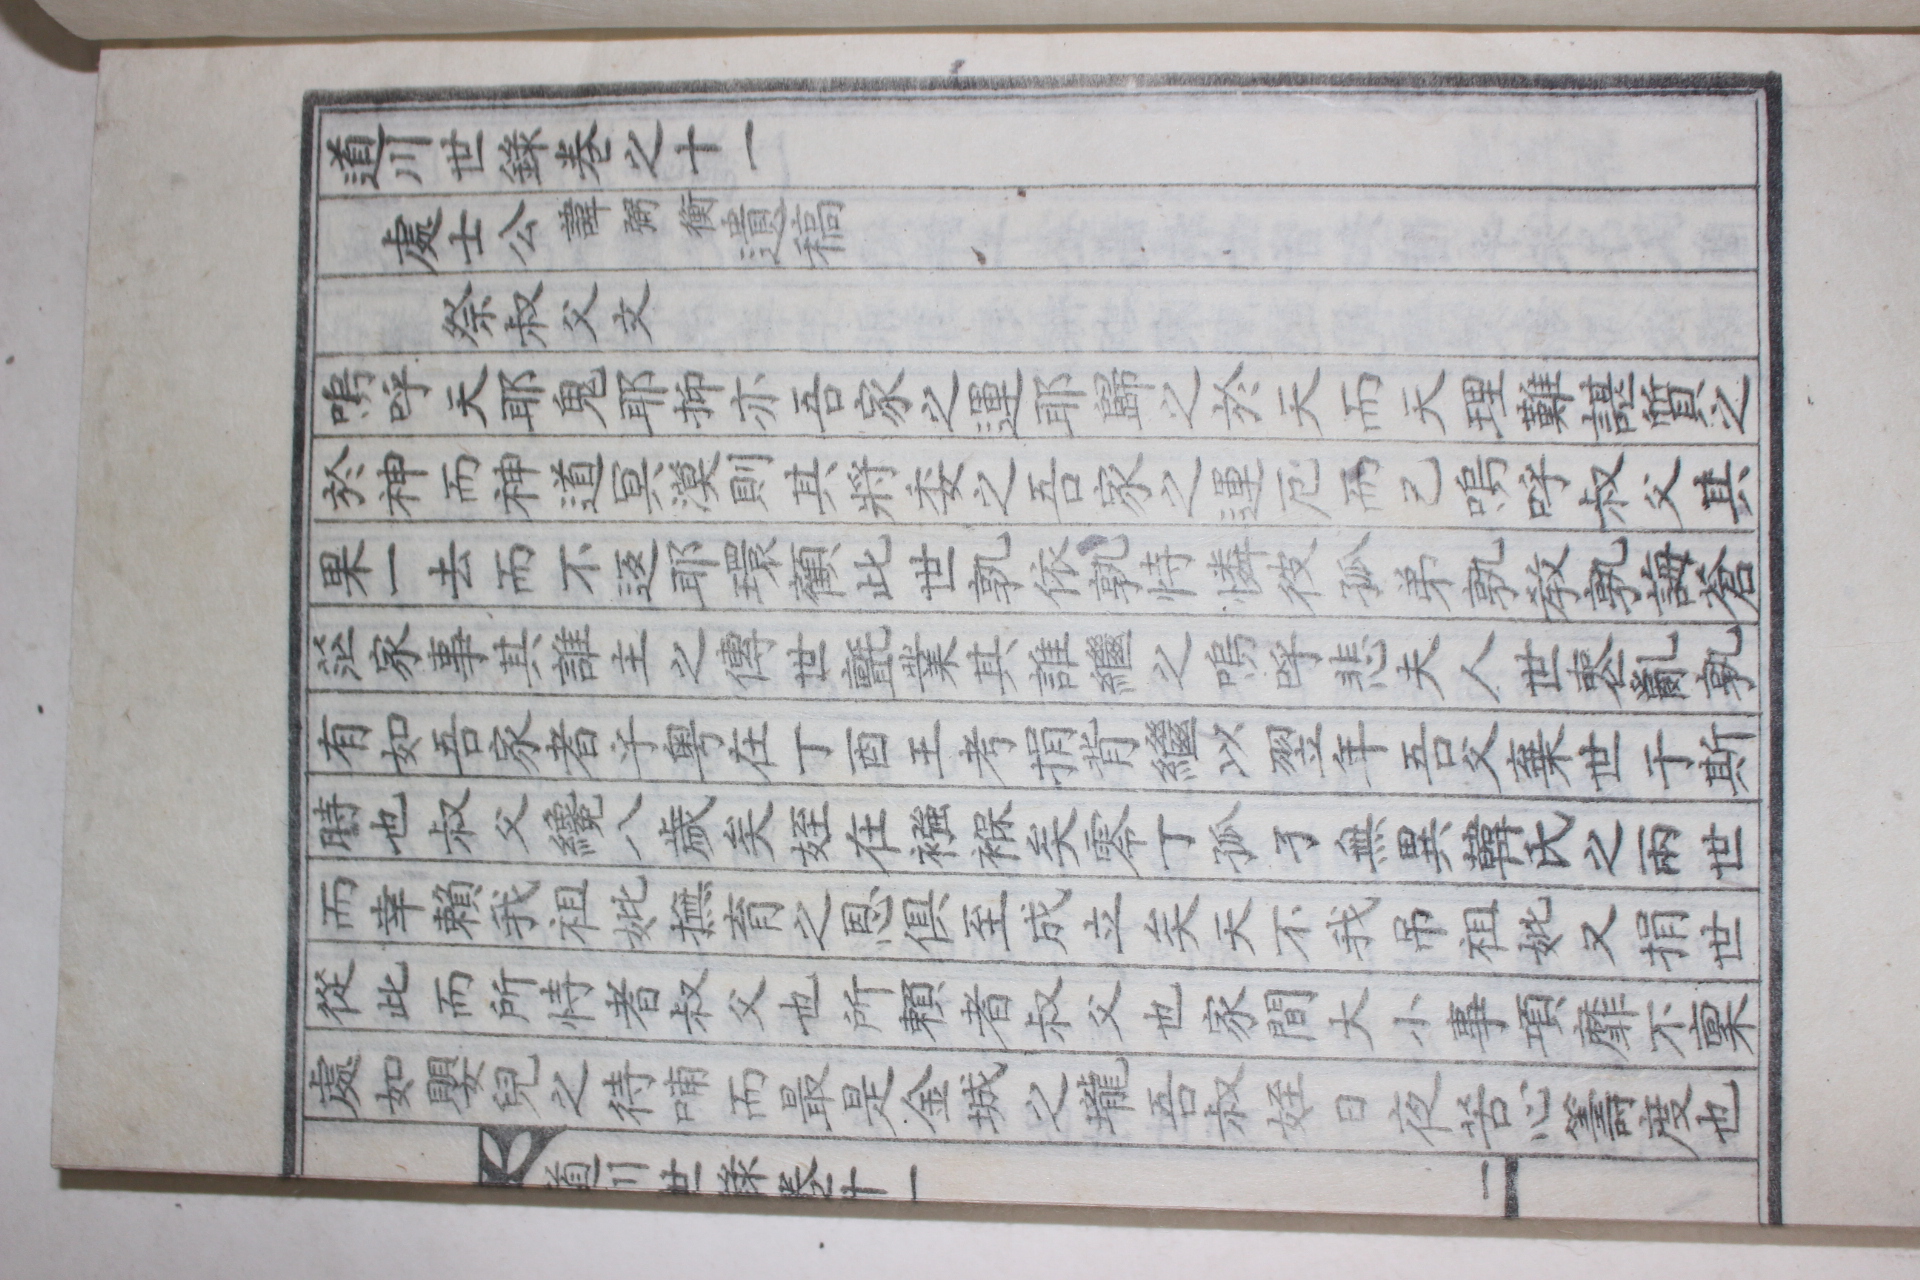 道川世錄卷之十一
處士公諱弼衡遺稿
祭叔父文
嗚呼天耶鬼耶抑亦吾家之運耶歸之於天而天理難諶質之
於神而神道冥漠則其將委之吾家之運厄而已嗚呼叔父其
果一去而不返耶環顧此世孰依孰恃憐彼孤弟孰敎孰誨蒼
茫家事其誰主之傳世氈業其誰繼之嗚呼悲夫人世喪亂孰
有如吾家者乎粤在丁酉王考捐背繼以翌年吾父棄世于斯
時也叔父纔八歲矣姪在襁褓矣零丁孤孑無異韓氏之兩世
而幸賴我祖妣撫育之恩俱至成立矣天不我弔祖妣又捐世
從此而所恃者叔父也所賴者叔父也家間大小事項靡不稟
處如嬰兒之待哺而最是金城之壠吾叔姪日夜苦心籌度也
道川世錄卷十一
一